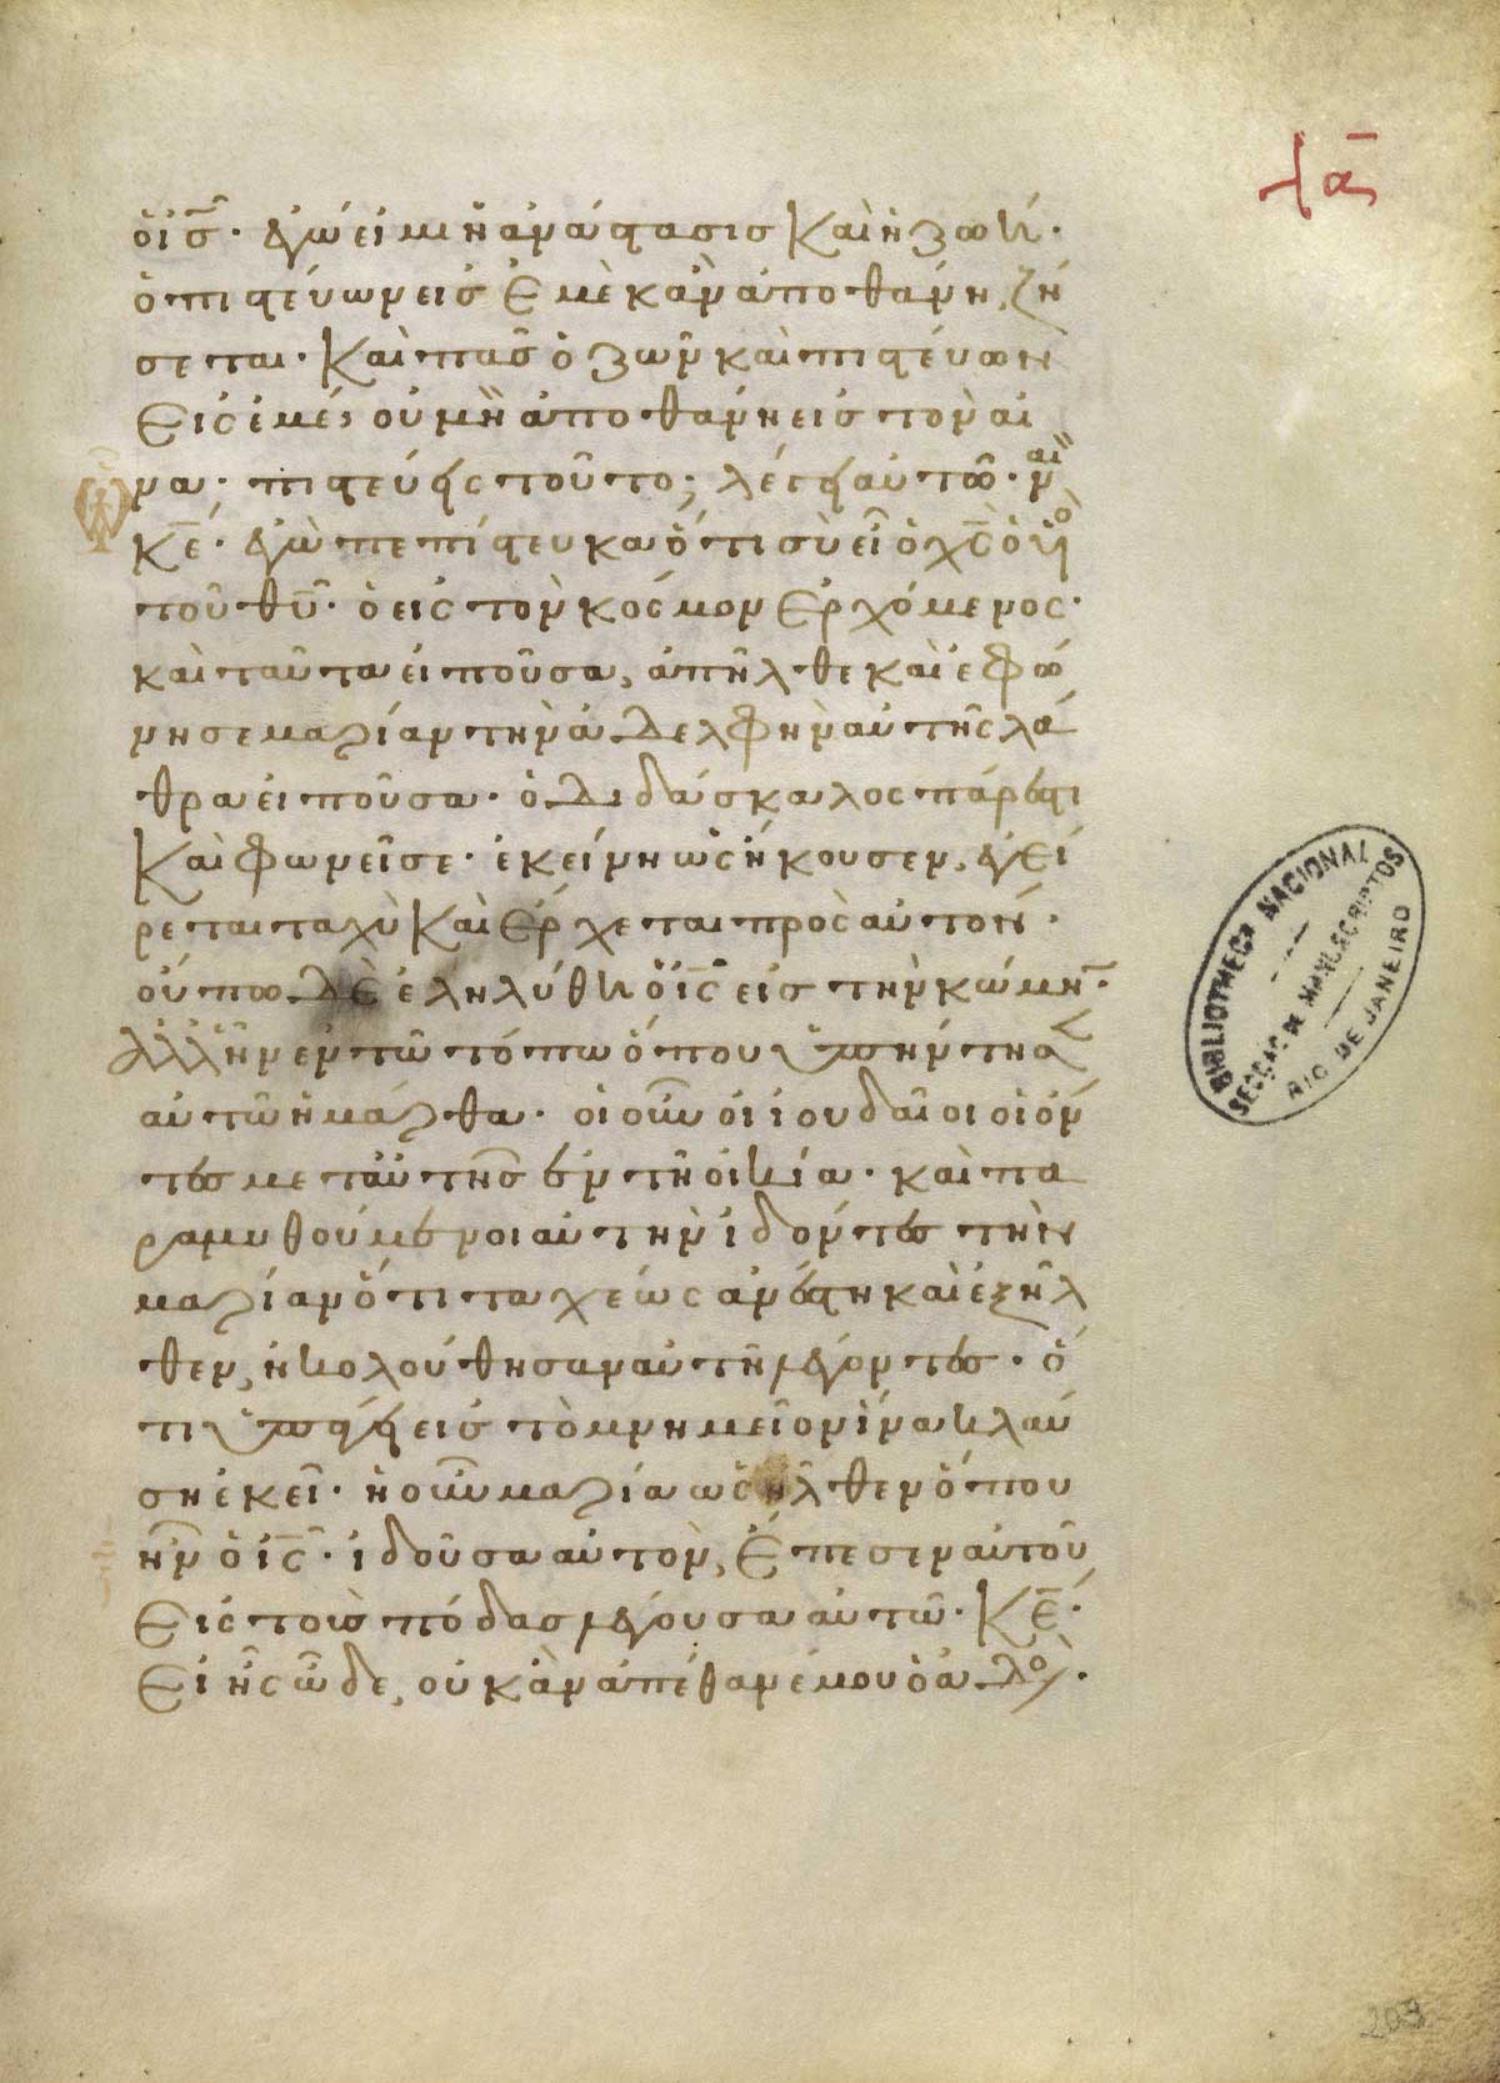 ὁ ἰς̅. ἐγώ εἰμι ἡ ἀνάστασις καὶ ἡ ζωή.
ὁ πιστεύων εἰς ἐμὲ κἂν ἀποθάνη, ζή
σεται. καὶ πᾶς ὁ ζῶν καὶ πιστεύων
εἰς ἐμέ, οὐ μὴ ἀποθάνη εἰς τὸν αἰ
να. πιστεύεις τοῦτο; λέγει αὐτῶ. ναὶ
κ̅ε̅. ἐγὼ πεπίστευκα ὅτι σὺ εἶ ὁ χ̅ς̅ ὁ υἱὸ
τοῦ θ̅υ̅. ὁ εἰς τὸν κόσμον ἐρχόμενος.
καὶ ταῦτα εἰποῦσα, ἀπῆλθε καὶ ἐφώ
νησε μαρίαν τὴν ἀδελφὴν αὐτῆς λά
θρα εἰποῦσα. ὁ διδάσκαλος πάρεστι
καὶ φωνεῖ σε. ἐκείνη ὡς ἤκουσεν, ἐγεί
ρεται ταχὺ καὶ ἔρχεται πρὸς αὐτόν.
οὔπω δὲ ἐληλύθη ὁ ἰς̅ εἰς τὴν κώμην.
ἀλλ' ἦν ἐν τῶ τόπω ὅπου ὑπήντησ
αὐτῶ ἡ μάρθα. οἱ οὖν ἰουδαῖοι οἱ ὄν
τες μετ' αὐτῆς ἐν τῆ οἰκία. καὶ πα
ραμυθούμενοι αὐτὴν ἰδόντες τὴν
μαρίαν ὅτι ταχέως ἀνέστη καὶ ἐξῆλ
θεν, ἠκολούθησαν αὐτῆ λέγοντες. ὅ
τι ὑπάγει εἰς τὸ μνημεῖον ἵνα κλαύ
ση ἐκεῖ. ἡ οὖν μαρία ὡς ἦλθεν ὅπου
ἦν ὁ ἰς̅. ἰδοῦσα αὐτὸν, ἔπεσεν αὐτοῦ
εἰς τοὺς πόδας λέγουσα αὐτῶ. κ̅ε̅.
εἰ ἦς ὧδε, οὐκ ἂν ἀπέθανέ μου ὁ ἀδελφὸς.
BIBLIOTHECA NACIONAL
SECÇÃO DE MANUSCRIPTOS
RIO DE JANEIRO
203